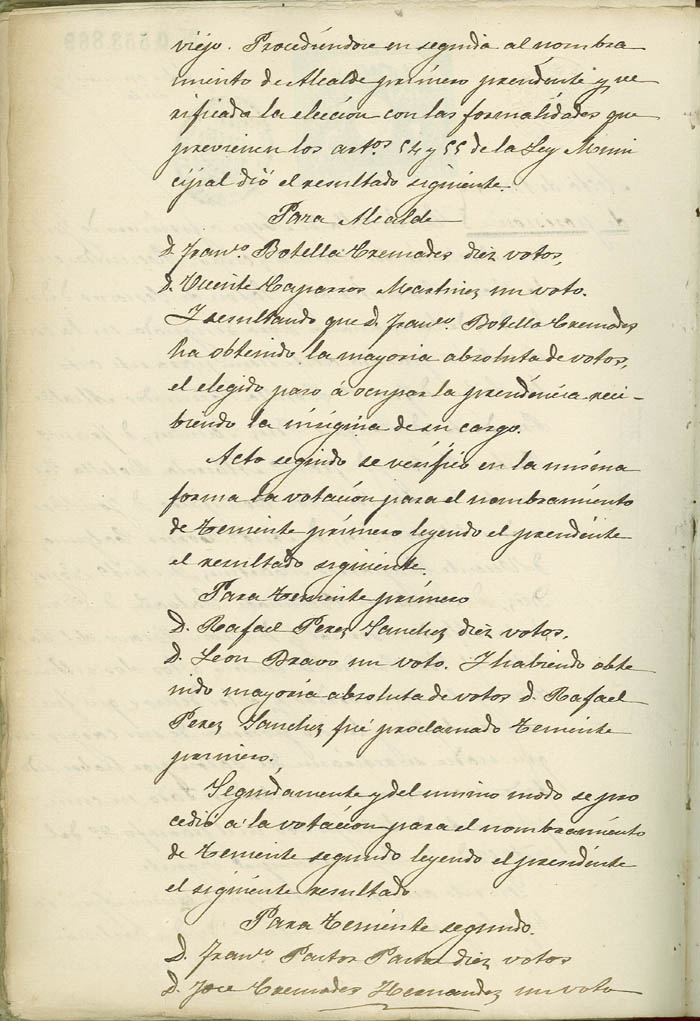 viejo. Procediéndose en seguida al nombra
miento de Alcalde primero presidente y ve
rificada la elección con las formalidades que
previenen los artos 54 y 55 de la Ley Muni
cipal dió el resultado siguiente.
Para Alcalde
D. Franco. Botella Cremades diez votos,
D. Vicente Caparros Martinez un voto.
I resultando que D. Franco. Botella Cremades
ha obtenido la mayoria absoluta de votos,
el elegido paso á ocupar la presidencia reci-
biendo la insignia de su cargo.
Acto seguido se verificó en la misma
forma la votación para el nombramiento
de Teniente primero leyendo el presidente
el resultado siguiente.
Para Teniente primero
D. Rafael Perez Sanchez diez votos.
D. Leon Bravo un voto. I habiendo obte
nido mayoria absoluta de votos D. Rafael
Perez Sanchez fué proclamado Teniente
primero.
Seguidamente y del mismo modo se pro
cedió á la votación para el nombramiento
de Teniente segundo leyendo el presidente
el siguiente resultado
Para Teniente segundo.
D. Franco Pastor Pastor diez votos
D. Jose Cremades Hernandez un voto